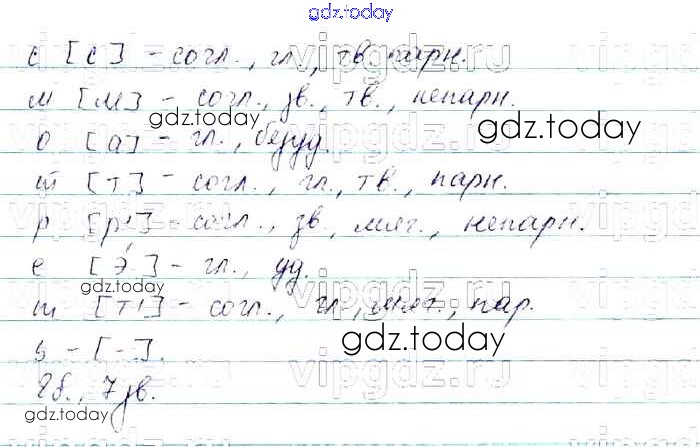 gdz.today
с [с] - согл., гл., тв. парн.
м [м] - согл., зв., тв., непарн.
gdz.today
gdz.today
о [а] - гл., безуд.
т [т] - согл., гл., тв., парн.
р [р'] - согл., зв., мяг., непарн.
е [э́] - гл., уд.
gdz.today
т [т'] - согл., гл., мяг., пар.
gdz.today
ь - [-].
8б., 7 зв.
gdz.today